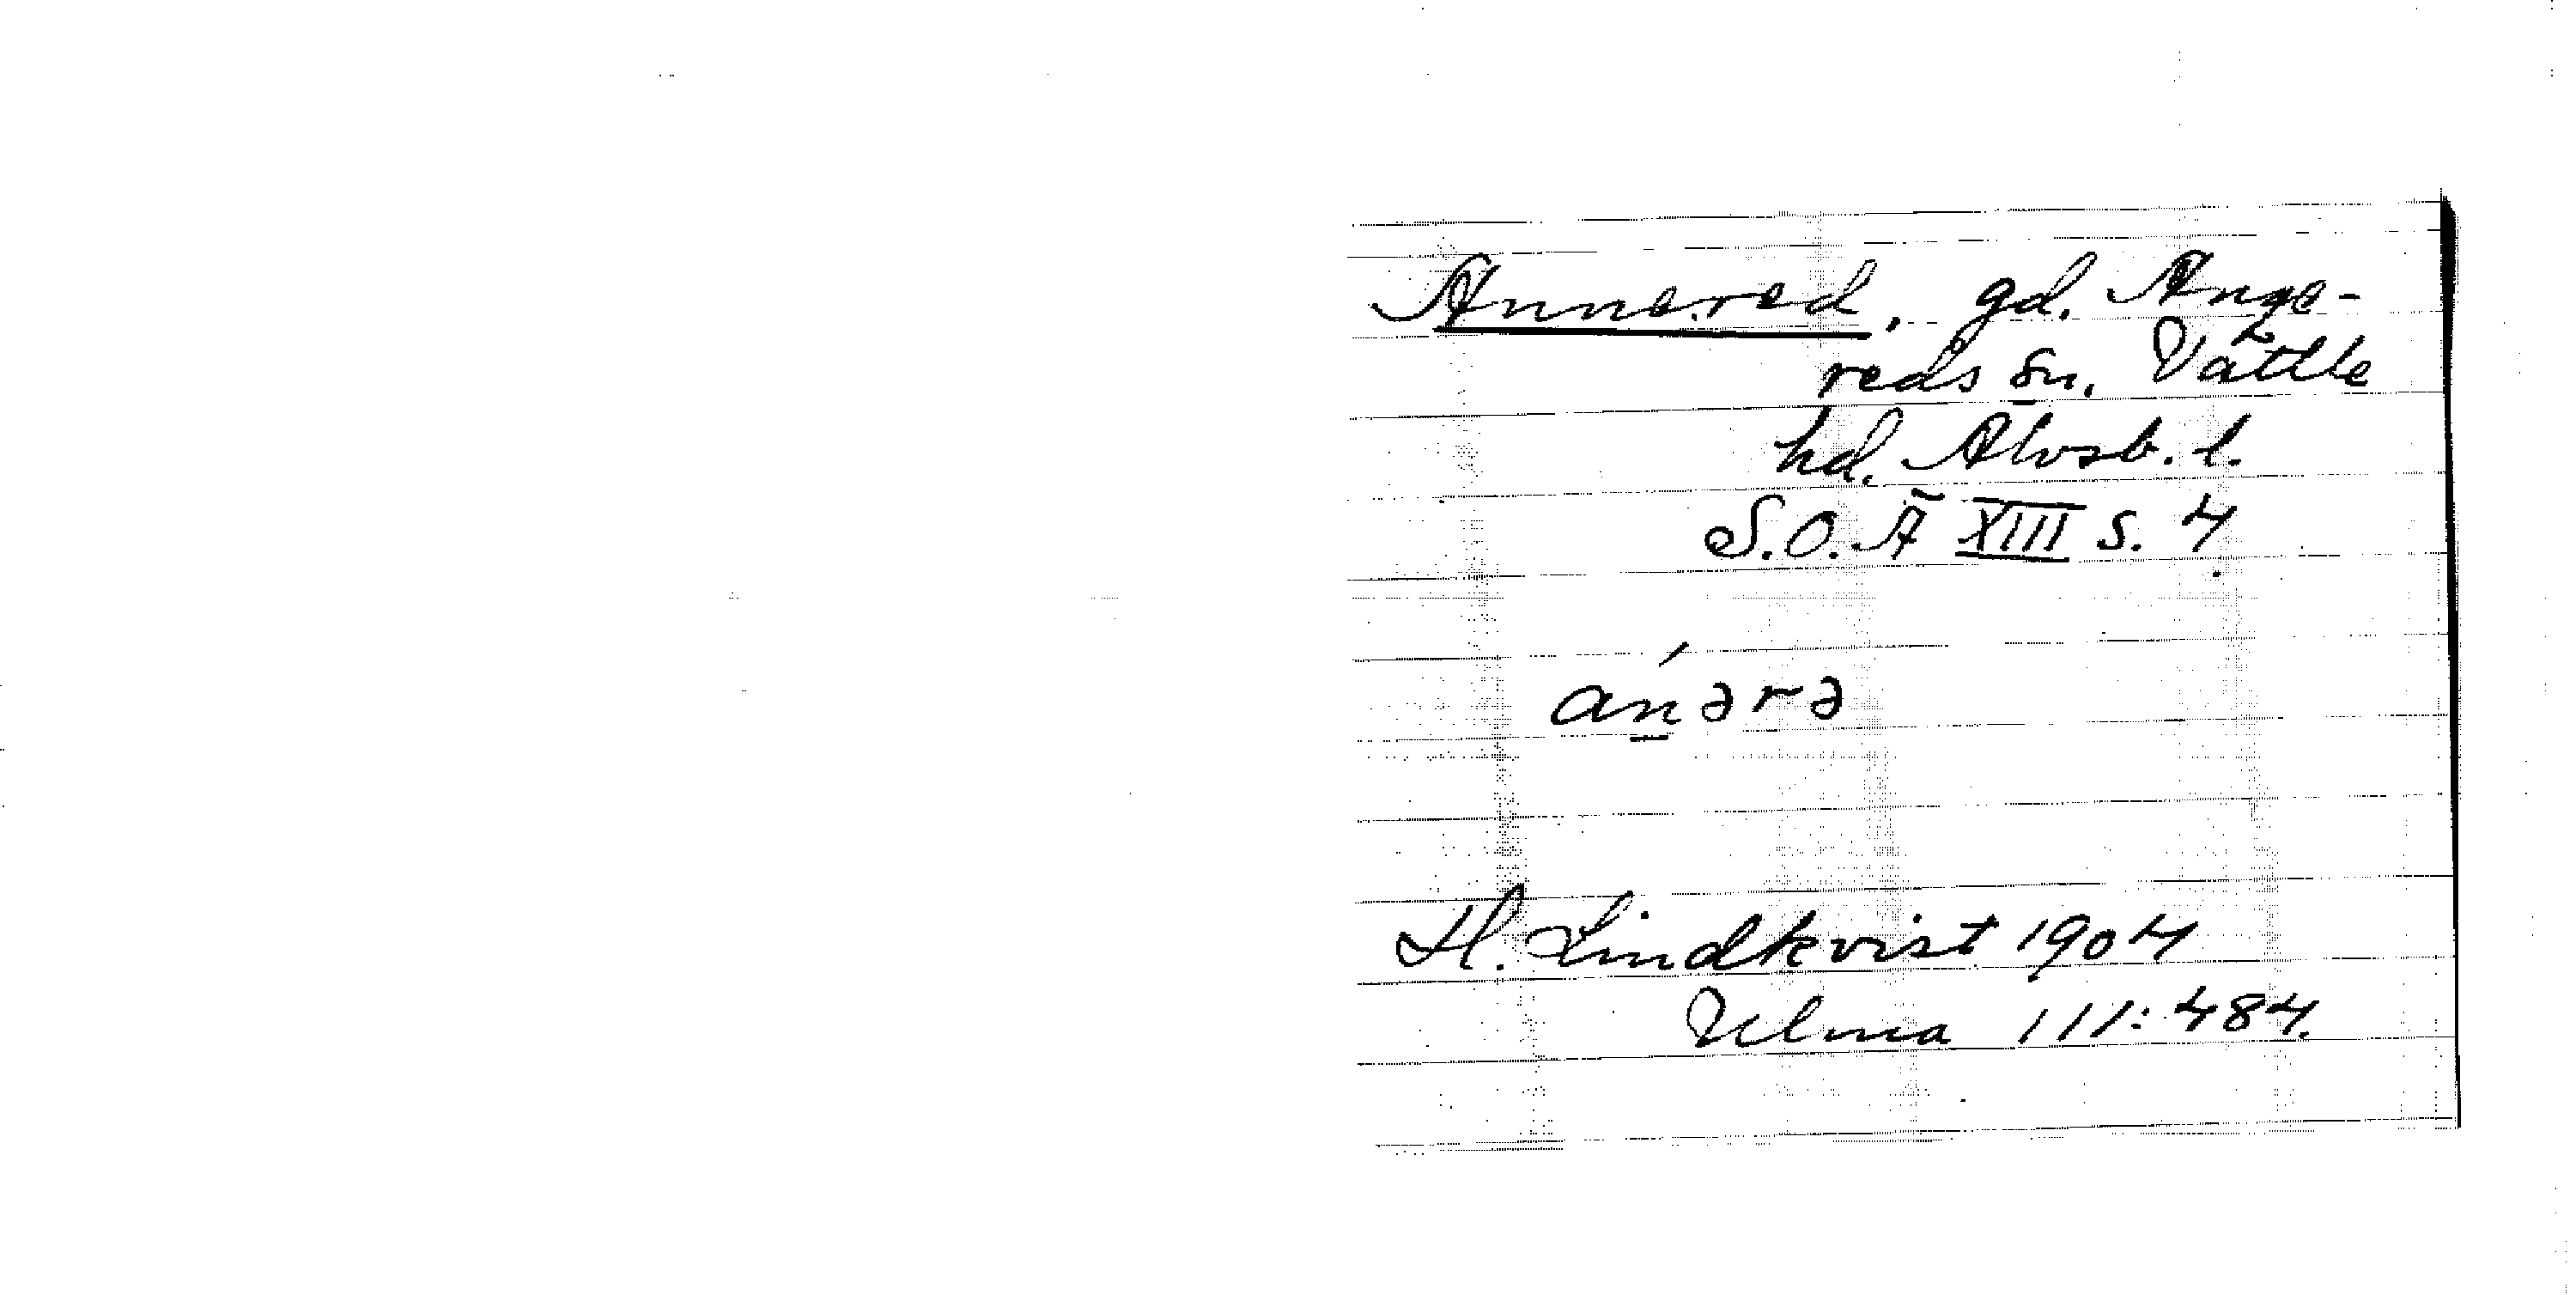 Annered, gd. Ange-
reds sn. Vättle
hd. Älvsb. l.
S.O. Ä XIII s. 4
ánərə
H. Lindkvist 1904
Ulma 111:484.